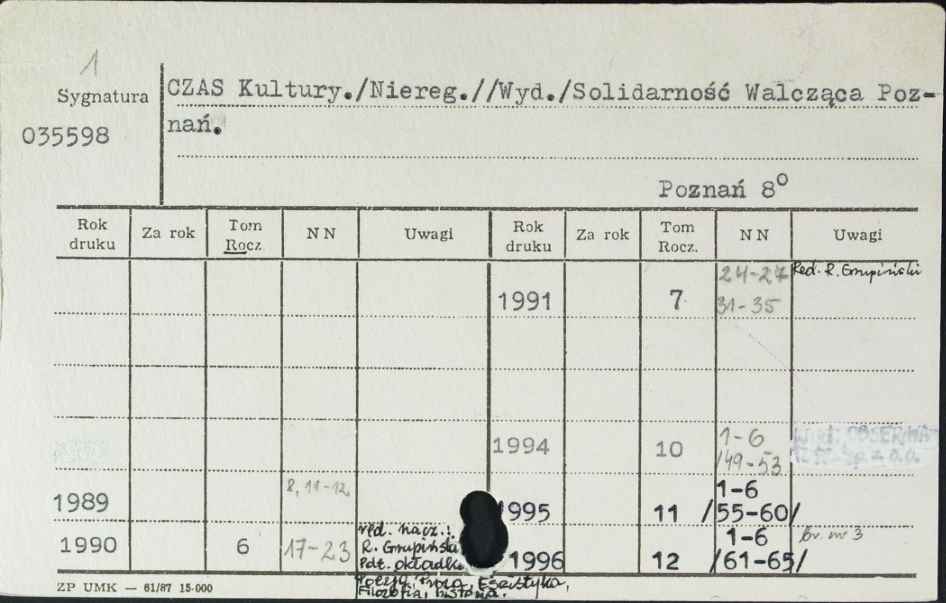 1
Sygnatura
035598
CZAS Kultury./Niereg.//Wyd./Solidarność Walcząca Poz-
nań.
Poznań 8°
Rok druku Za rok Tom Rocz. NN Uwagi Rok druku Za rok Tom Rocz. NN Uwagi
1991 7 24-27 Red. R. Grupiński
31-35
1994 10 1-6
/49-53
1989 8, 11-12, 1995 11 1-6
/55-60/
1990 6 17-23 red. nacz.: R. Grupiński Pdt. okładki 1996 12 1-6 br. nr 3
/61-65/
Poezja, Proza, Eseistyka,
Filozofia, historia.
ZP UMK — 61/87 15.000